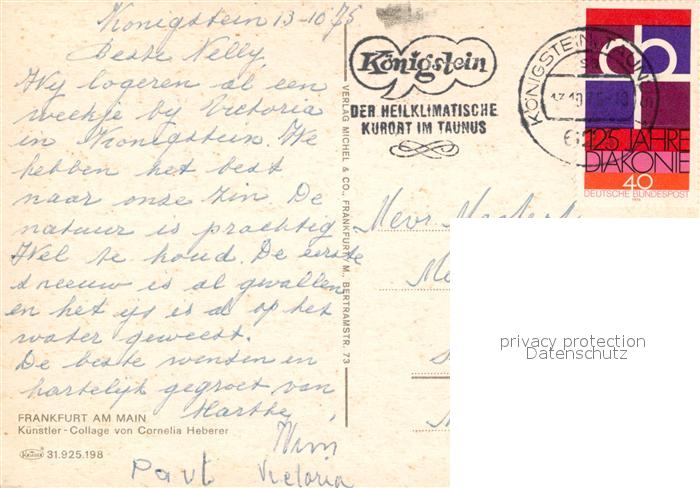 Konigstein 13-10 75
Beste Nelly,
Wy logeren al een
weekje by Victoria
in Konigstein. We
hebben het best
naar onze zin. De
natuur is prachtig
Wel te koud. De eerste
sneeuw is al gevallen
en het ys is al op het
water geweest.
De beste wensen en
hartelyk gegroet van
Marthe
Wim
Paul Victoria
FRANKFURT AM MAIN
Künstler-Collage von Cornelia Heberer
Krüger 31.925.198
VERLAG MICHEL & CO., FRANKFURT/M., BERTRAMSTR. 73
Königstein
DER HEILKLIMATISCHE
KURORT IM TAUNUS
KÖNIGSTEIN, TAUNUS
125 JAHRE
DIAKONIE
40
DEUTSCHE BUNDESPOST
Mevr
privacy protection
Datenschutz